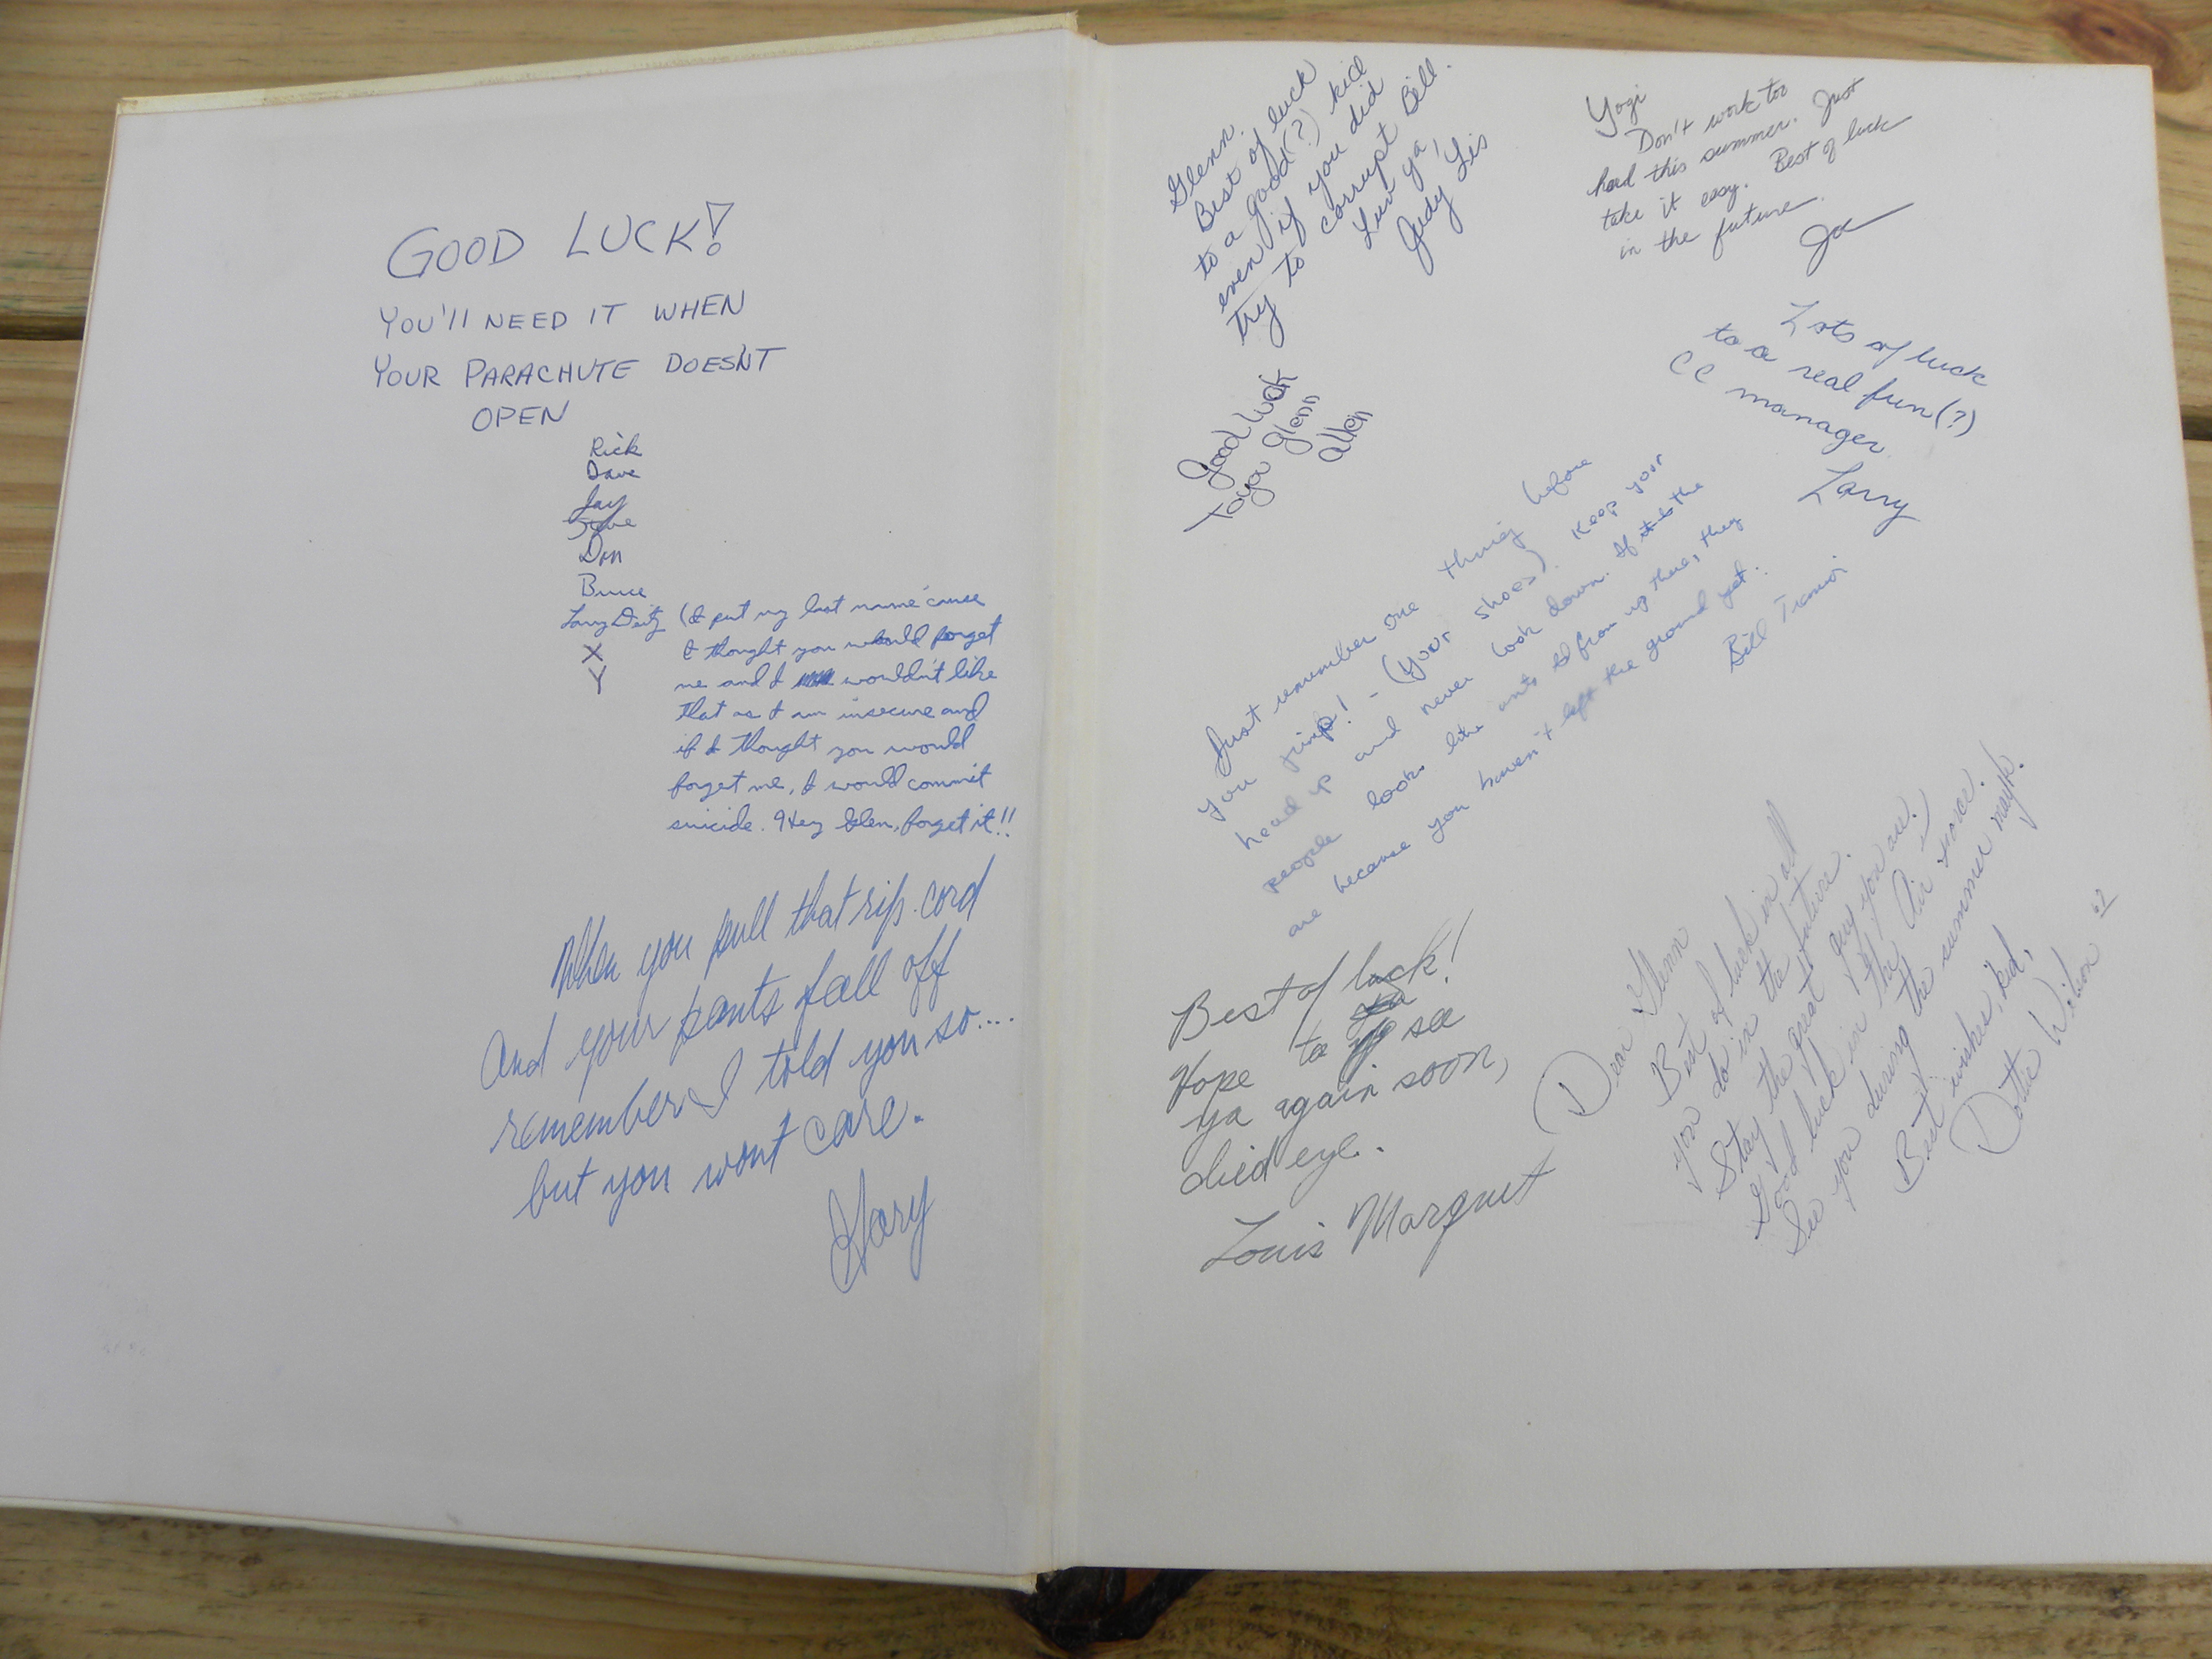 GOOD LUCK!
YOU'll NEED IT WHEN
YOUR PARACHUTE DOESN'T
OPEN
Rick
Dave
Jay
Don
Bruce
Larry (I put my last name 'cause
I thought you would forget
me and I wouldn't like
that as I am insecure and
if I thought you would
forget me, I would commit
suicide. Hey Glen, forget it!!
X
Y
When you pull that rip-cord
And your pants fall off
remember I told you so....
but you wont care.
Gary
Glenn,
Best of luck
to a good(?) kid
even if you did
try to corrupt Bill.
Luv ya,
Judy Lis
Yogi
Don't work too
hard this summer. Just
take it easy. Best of luck
in the future.
Joe
Lots of luck
to a real fun(?)
CC manager
Larry
Good luck
to you glenn
allen
Just remember one thing before
you jump! - (your shoes). Keep your
head up and never look down. If the
people look like ants from up there, they
are because you haven't left the ground yet.
Bill
Best of luck!
Hope to see
ya again soon,
died eye.
Louis Marquet
Dear Glenn
Best of luck in all
you do in the future.
Stay the great guy you are.
Good luck in the Air Force.
See you during the summer maybe.
Best wishes, kid,
Dottie Wilson